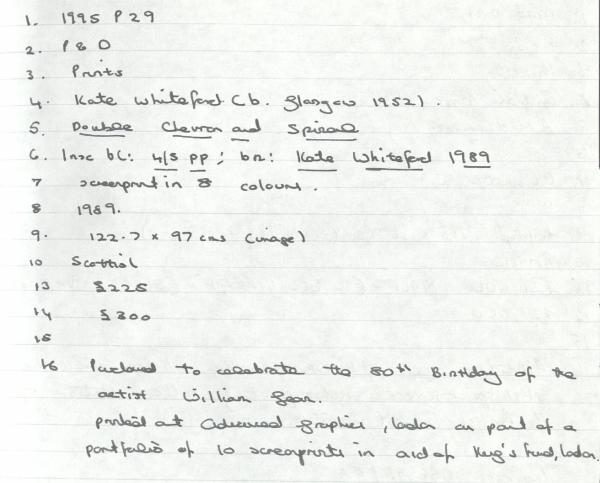 1. 1995 P 29
2. P & D
3. Prints
4. Kate Whiteford (b. Glasgow 1952).
5. Double Chevron and Spiral
6. Insc bl: 4/5 PP; br: Kate Whiteford 1989
7 screenprint in 8 colours.
8 1989.
9. 122.7 x 97 cms (image)
10 Scottish
13 £225
14 £300
15
16 Purchased to celebrate the 80th Birthday of the
artist William Gear.
printed at Advanced Graphics, London as part of a
portfolio of 10 screenprints in aid of King's Fund, London.